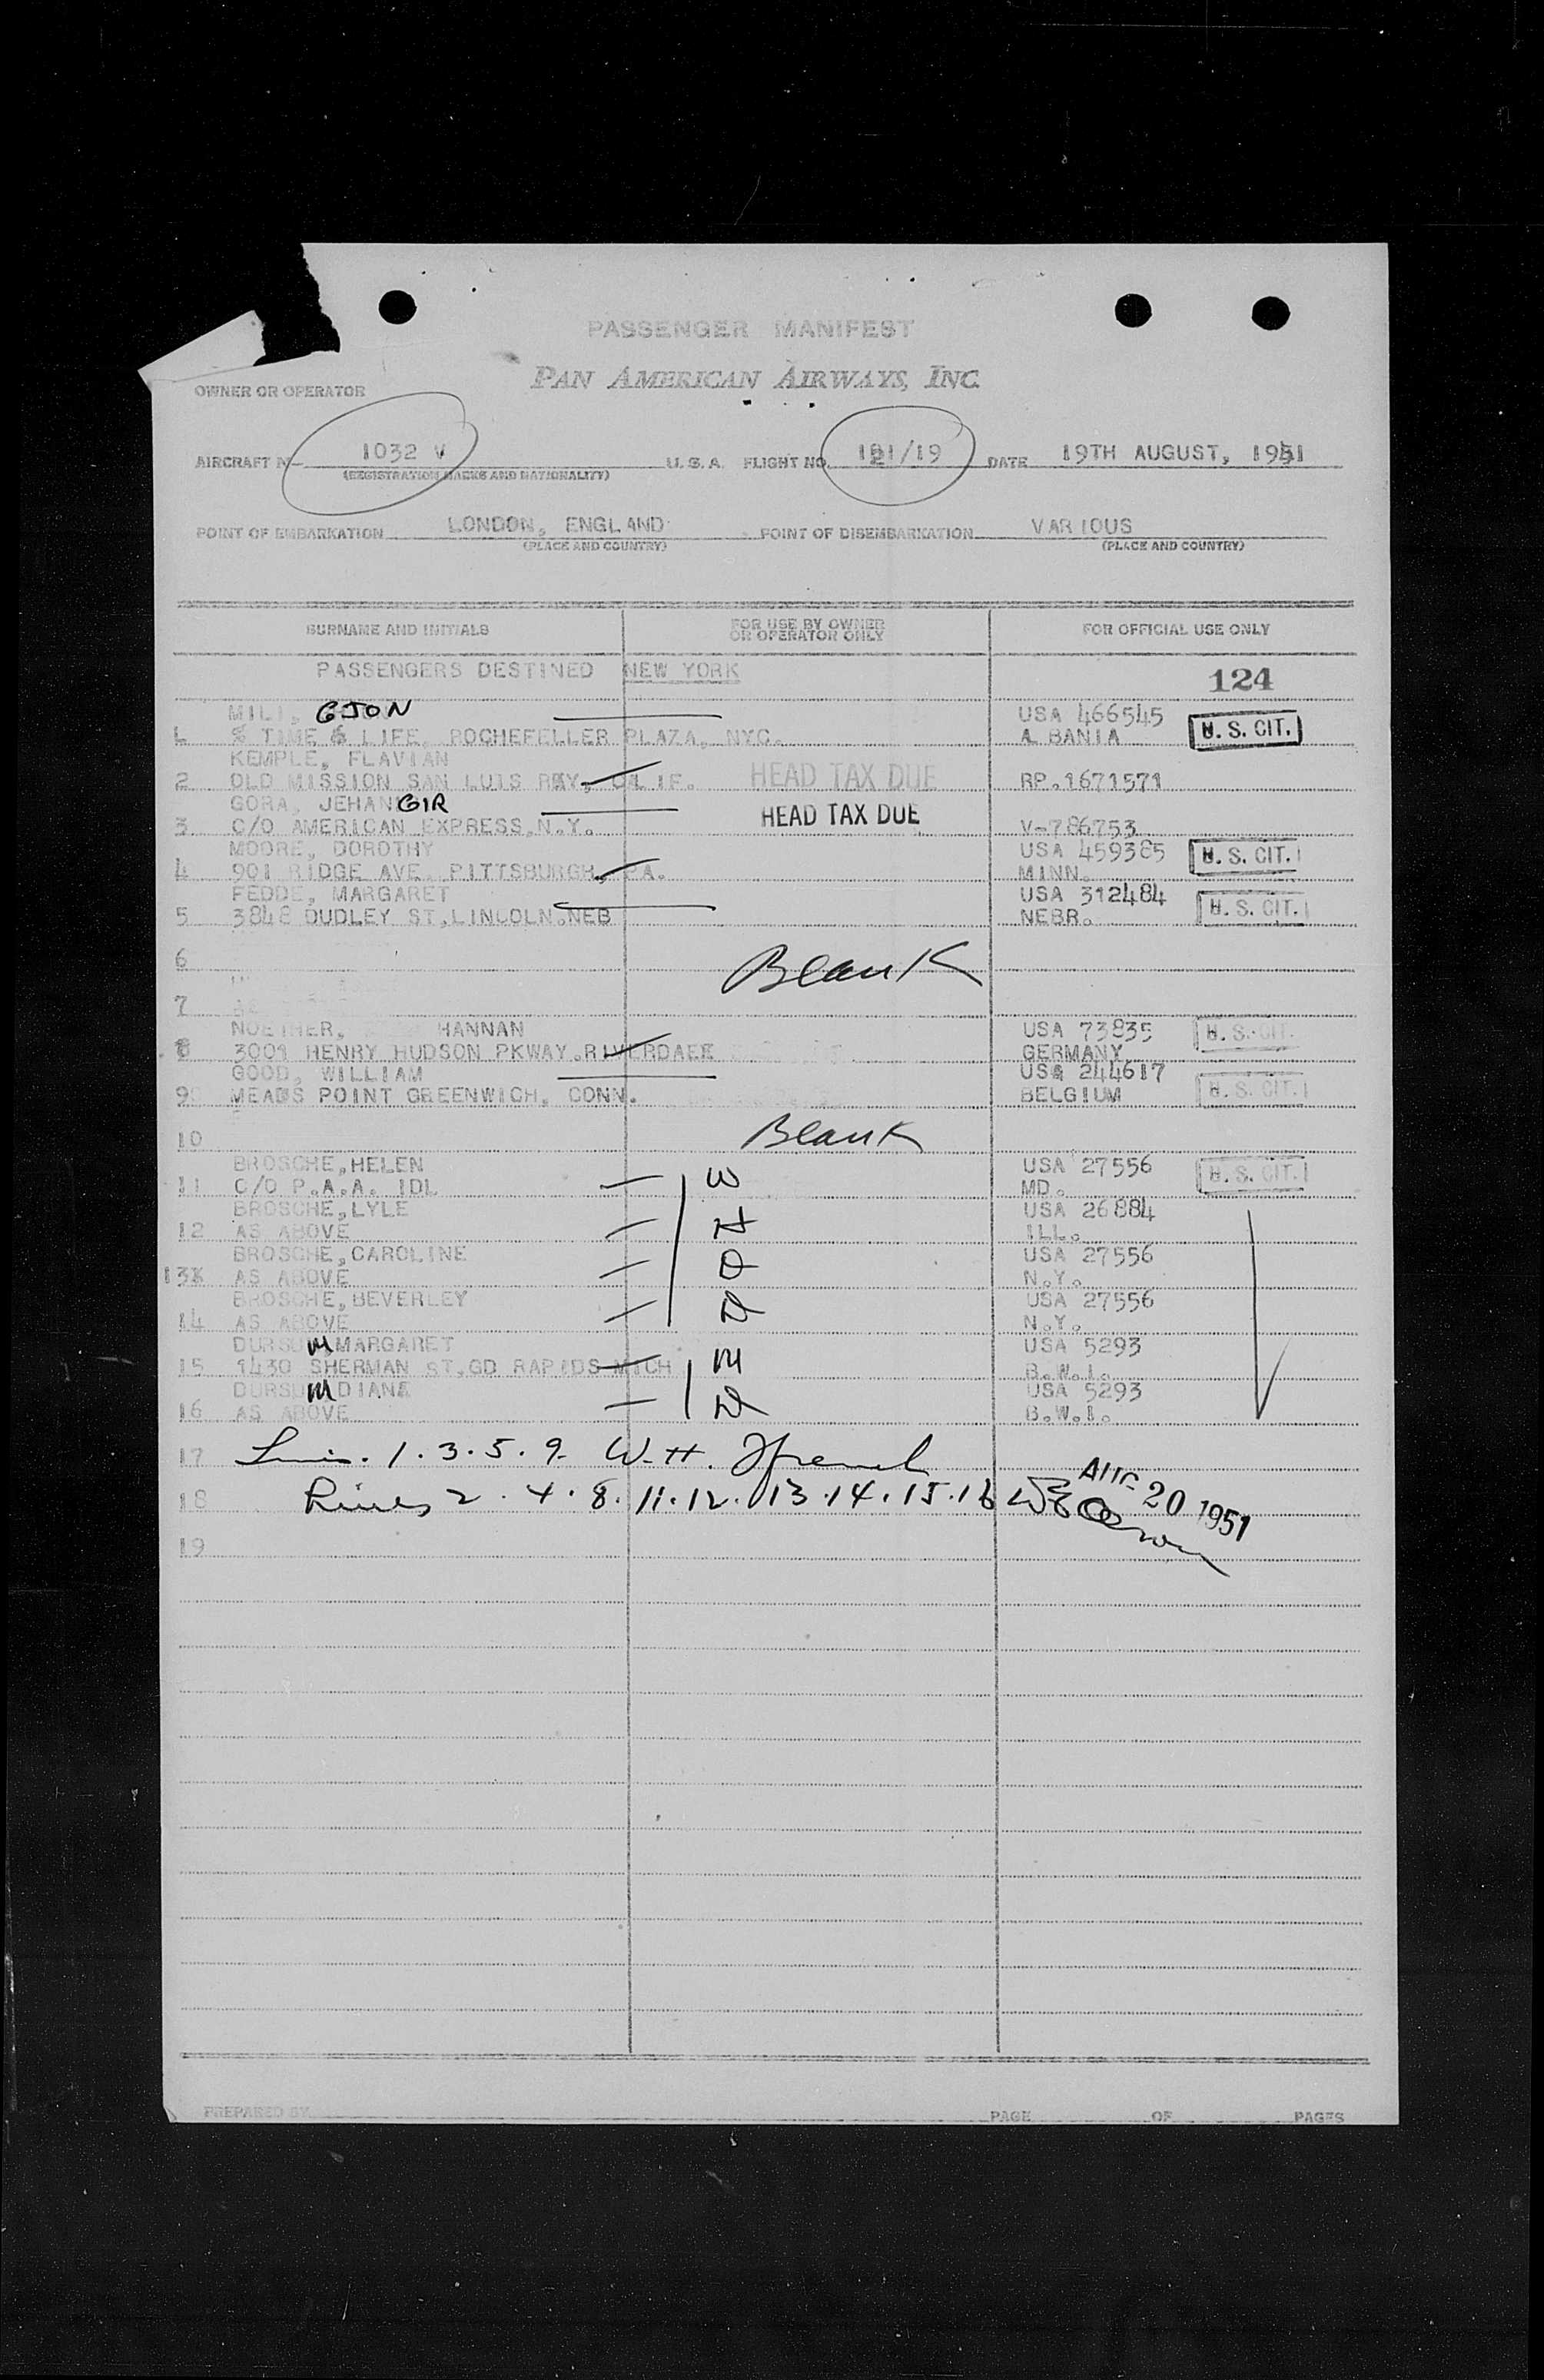 PASSENGER MANIFEST
PAN AMERICAN AIRWAYS, INC.
OWNER OR OPERATOR
AIRCRAFT N 1032 V U.S.A. FLIGHT NO. 121/19 DATE 19TH AUGUST, 1951
(REGISTRATION MARKS AND NATIONALITY)
POINT OF EMBARKATION LONDON, ENGLAND POINT OF DISEMBARKATION VARIOUS
(PLACE AND COUNTRY) (PLACE AND COUNTRY)
SURNAME AND INITIALS FOR USE BY OWNER OR OPERATOR ONLY FOR OFFICIAL USE ONLY
PASSENGERS DESTINED NEW YORK 124
MILI, GJON USA 466545
% TIME & LIFE, ROCHEFELLER PLAZA, NYC. A BANIA U. S. CIT.
KEMPLE, FLAVIAN
2 OLD MISSION SAN LUIS REY, CALIF. HEAD TAX DUE RP.1671571
GORA, JEHANGIR
3 C/O AMERICAN EXPRESS,N.Y. HEAD TAX DUE V-786753
MOORE, DOROTHY USA 459385
4 901 RIDGE AVE. PITTSBURGH, PA. MINN. U. S. CIT.
FEDDE, MARGARET USA 312484
5 3848 DUDLEY ST.LINCOLN.NEB NEBR. U. S. CIT.
6 Blank
7
NOETHER, HANNAN USA 73835
8 3001 HENRY HUDSON PKWAY.RIVERDALE GERMANY U. S. CIT.
GOOD, WILLIAM USA 244617
9 MEADS POINT GREENWICH, CONN. BELGIUM U. S. CIT.
10 Blank
BROSCHE,HELEN USA 27556
11 C/O P.A.A. IDL W MD. U. S. CIT.
BROSCHE,LYLE USA 26884
12 AS ABOVE H ILL.
BROSCHE,CAROLINE USA 27556
13 AS ABOVE D N.Y.
BROSCHE,BEVERLEY USA 27556
14 AS ABOVE D N.Y.
DURSUM MARGARET USA 5293
15 1430 SHERMAN ST.GD RAPIDS MICH M B.W.I.
DURSUM DIANE USA 5293
16 AS ABOVE D B.W.I.
17 Lines. 1. 3. 5. 9. W. H. French
18 Lines 2. 4. 8. 11. 12. 13. 14. 15. 16 AUG 20 1951
19
PREPARED BY PAGE OF PAGES